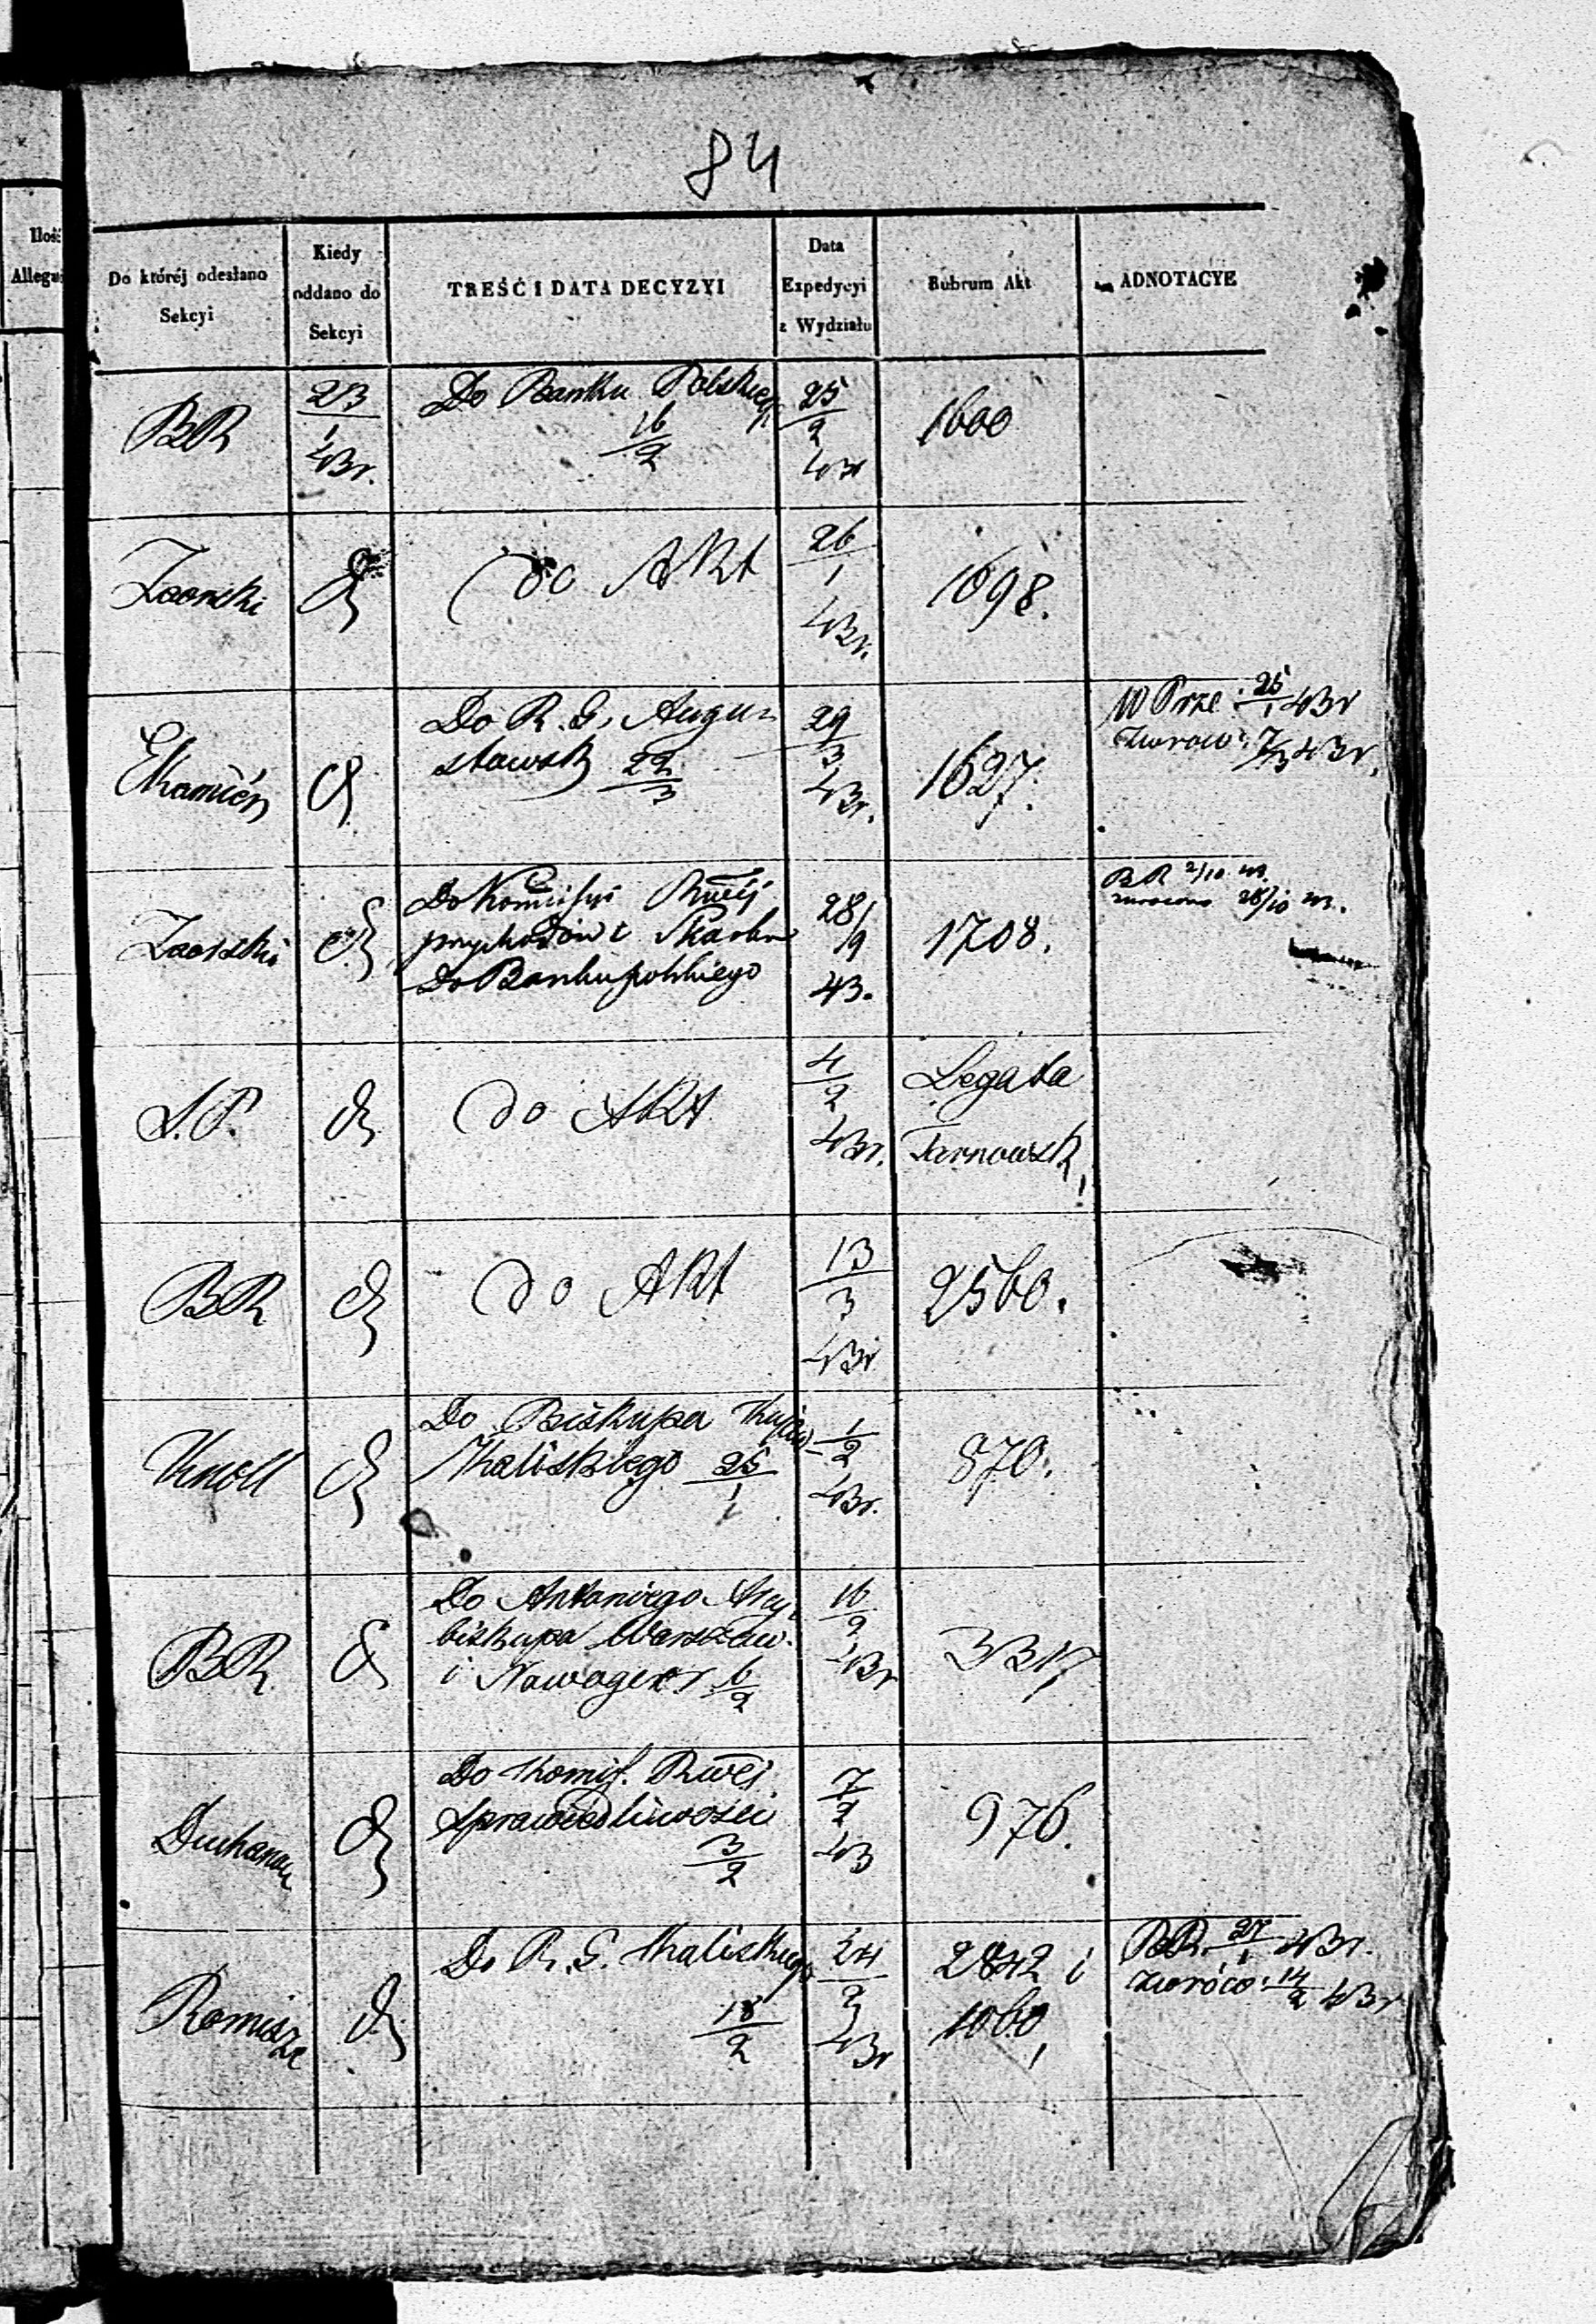 84
Ilość
Do której odesłano
Sekcyi
Kiedy
oddano do
Sekcyi
TREŚĆ I DATA DECYZYI
Data
Expedycyi
z Wydziału
Rubrum Akt
ADNOTACYE
BR
23/1 43r.
Do Banku Polskieg
16/2
25/2 43r
1600
do Akt
26/1 43r.
1698.
Do R. G. Augu-
stawsk 22/3
29/3 43r.
1627.
W Prze: 25/1 43r
43r.
Do Komisyi Rwéj
przychodów i Skarbu
Do Banku polskiego
28/9
43.
1708.
BR 2/10
zwrócono 28/10
S.P.
do Akt
4/2 43r.
Legata
Tarnowsk
BR
do Akt
13/3 43r
2560.
Knoll
Do Biskupa Kujaw
Kaliskiego 25/1
1/2 43r.
870.
BR
Do Antoniego Arcy-
biskupa Warszaw.
i Nawoger 6/2
16/2 43r
3317
Do Komis. Rwéj
Sprawiedliwości
3/2
7/2 43
976.
Do R. G. Kaliskiego
18/2
24/2 43r
2842 i
1060
BR. 27/1 43r.
zwróco: 14/2 43r